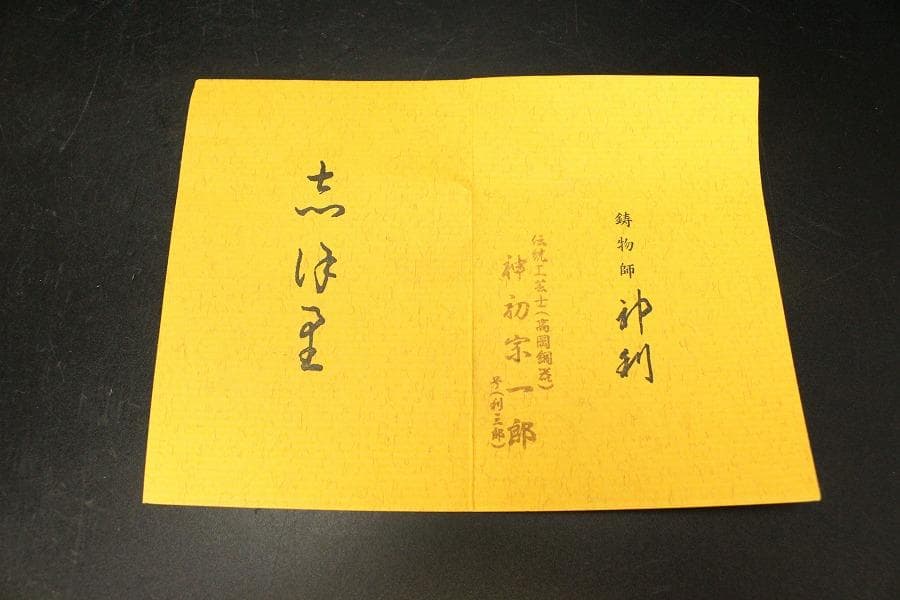 鑄物師 神利
伝統工芸士(高岡銅器)
神初宗一郎
号(利三郎)
志保里